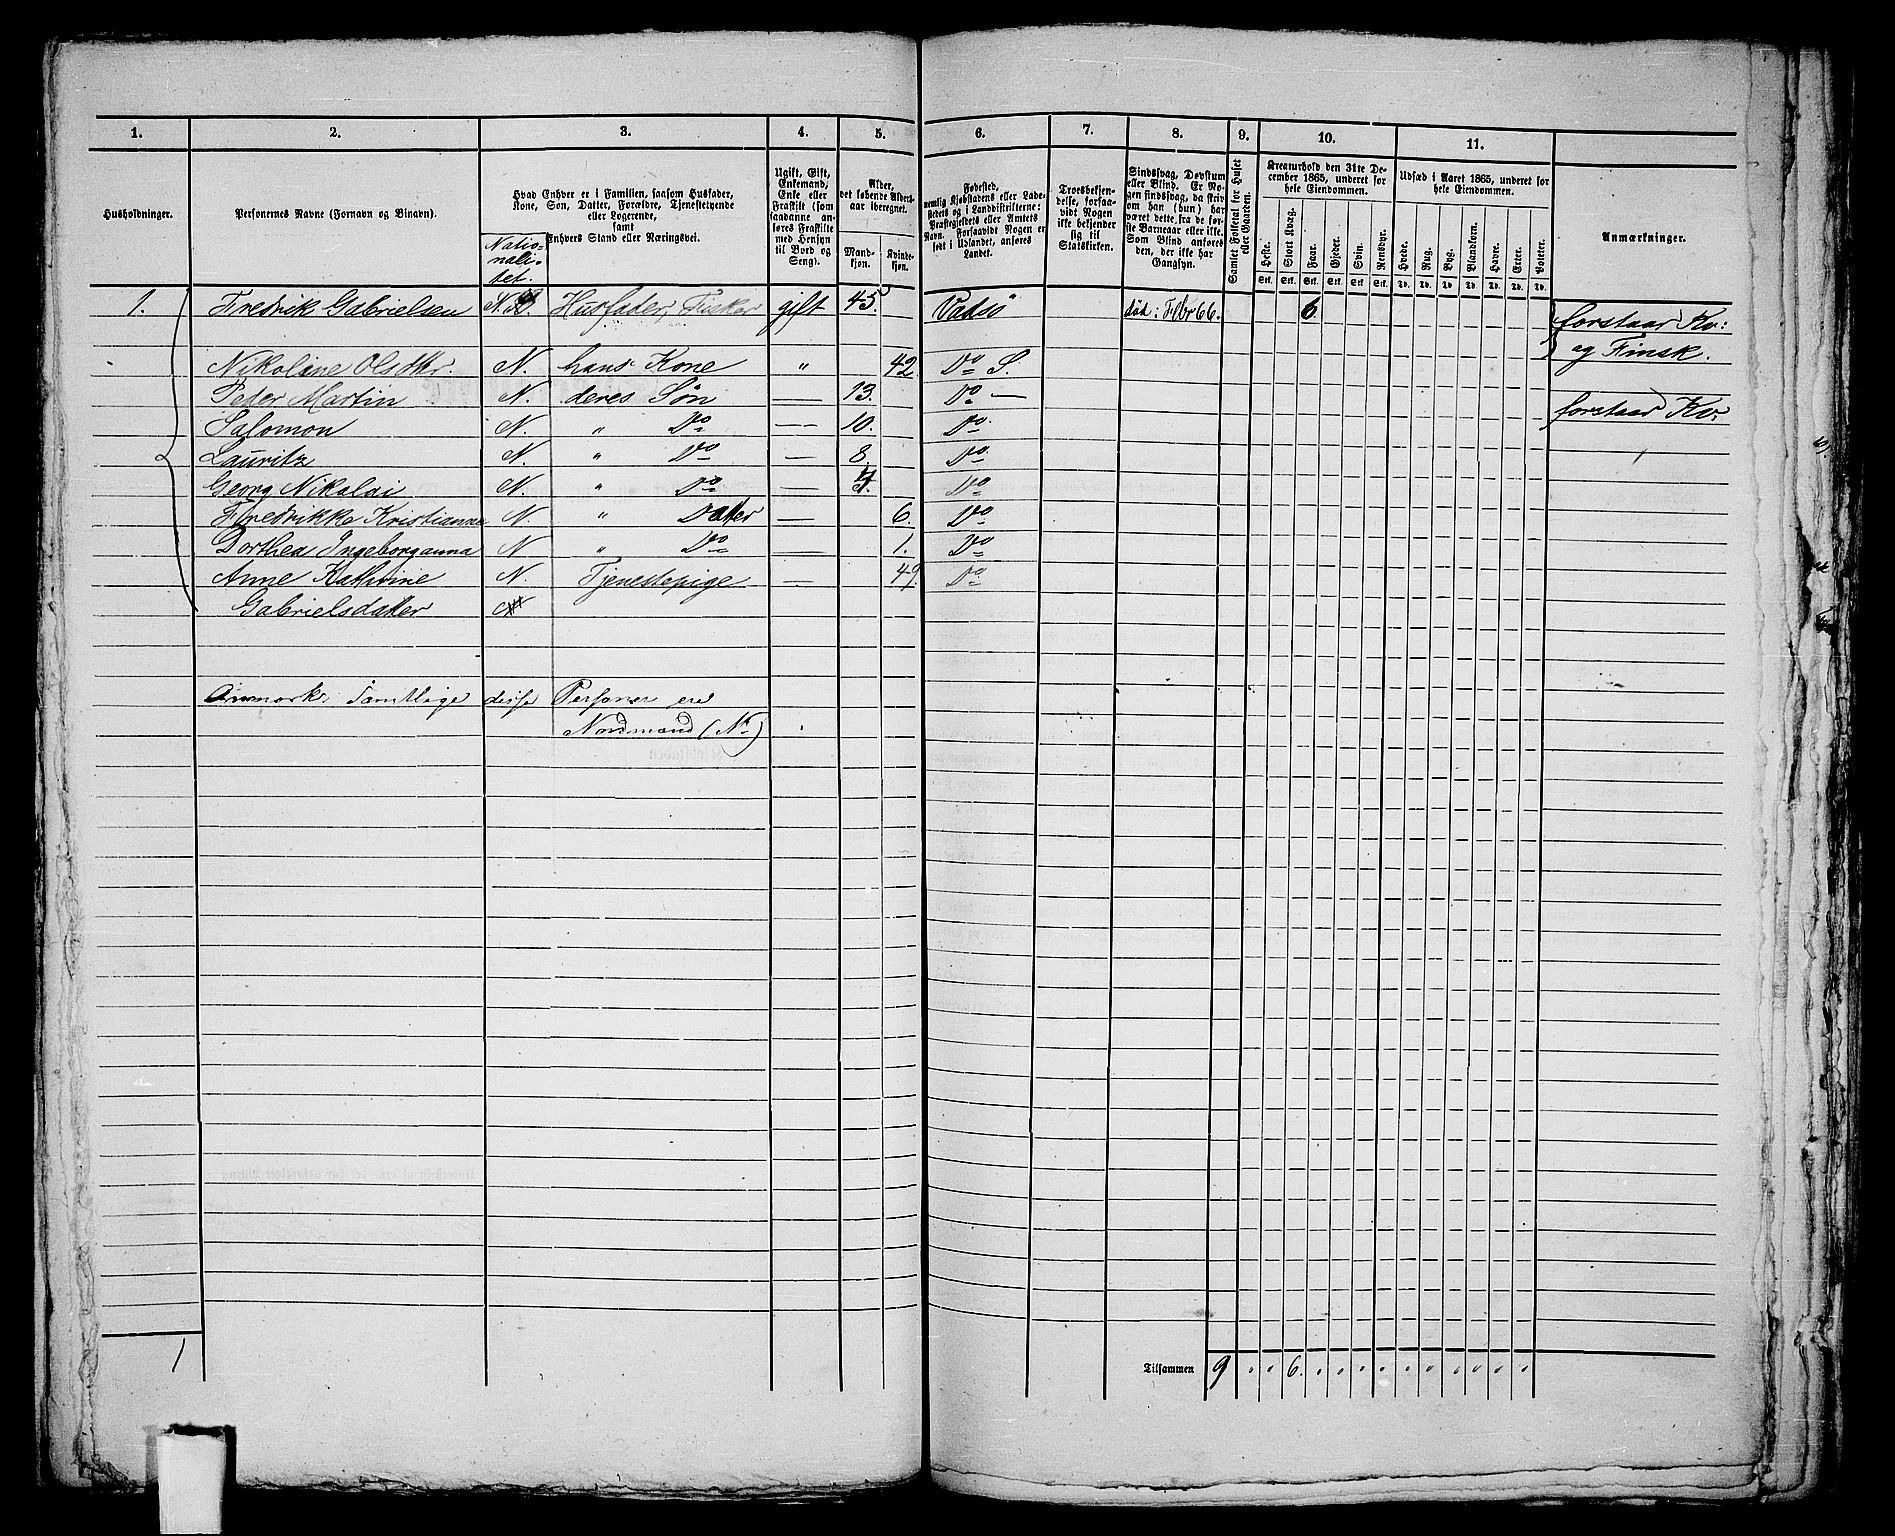 1. 2. 3. 4. 5. 6. 7. 8. 9. 10. 11.
Husholdninger.
Personernes Navne (Fornavn og Binavn).
Hvad Enhver er i Familien, saasom Husfader,
Kone, Søn, Datter, Forældre, Tjenestetyende
eller Logerende,
samt
Enhvers Stand eller Næringsvei.
Natio-
nali-
tet.
Ugift, Gift,
Enkemand,
Enke eller
Fraskilt (som
saadanne an-
føres Fraskilte
med Hensyn
til Bord og
Seng).
Alder,
det løbende Alders-
aar iberegnet.
Mand-
kjøn.
Kvinde-
kjøn.
Fødested,
nemlig Kjøbstadens eller Lade-
stedets og i Landdistrikterne:
Præstegjeldets eller Amtets
Navn. Forsaavidt Nogen er
født i Udlandet, anføres
Landet.
Troesbekjen-
delse, forsaa-
vidt Nogen
ikke bekjender
sig til
Statskirken.
Sindssvag, Døvstum
eller Blind. Er No-
gen sindssvag, da skri-
ves om han (hun) har
været dette fra de før-
ste Barneaar eller ikke.
Som Blind anføres
den, der ikke har
Gangsyn.
Samlet Folketal for Huset
eller Gaarden.
Kreaturhold den 31te De-
cember 1865, underet for
hele Eiendommen.
Heste. Stort Kvæg. Faar. Gjeder. Svin. Rensdyr.
Stk. Stk. Stk. Stk. Stk. Stk.
Udsæd i Aaret 1865, underet for
hele Eiendommen.
Hvede. Rug. Byg. Blandkorn. Havre. Erter. Poteter.
Td. Td. Td. Td. Td. Td. Td.
Anmærkninger.
1. Fredrik Gabrielsen N. Husfader, Fisker gift 45. Vadsø død: Febr 66. 6 forstaar Kv:
og Finsk.
Nikoline Olsdtr. N. hans Kone " 42. Do S.
Peder Martin N. deres Søn — 13. Do — forstaar Kv:
Salomon N. " Do — 10. Do
Lauritz N. " Do — 8. Do
Georg Nikolai N. " Do — Do
Fredrikke Kristianne N. " Datter — 6. Do
Dorthea Ingeborganna N " Do — 1. Do
Anne Kathrine N. Tjenestepige — 49. Do
Gabrielsdatter
Anmærk: Samtlige disse Personer ere
Nordmænd (N.)
1
Tilsammen 9 " " 6. " " " " " " " " " "